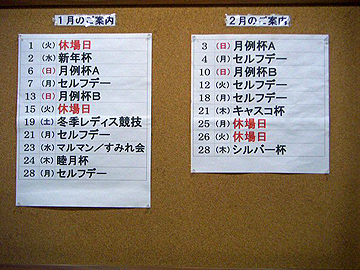 1月のご案内
1 (火) 休場日
2 (水) 新年杯
6 (日) 月例杯A
7 (月) セルフデー
13 (日) 月例杯B
15 (火) 休場日
19 (土) 冬季レディス競技
21 (月) セルフデー
23 (水) マルマン/すみれ会
24 (木) 睦月杯
28 (月) セルフデー
2月のご案内
3 (日) 月例杯A
4 (月) セルフデー
10 (日) 月例杯B
12 (火) セルフデー
18 (月) セルフデー
21 (木) キャスコ杯
25 (月) 休場日
26 (火) 休場日
28 (木) シルバー杯